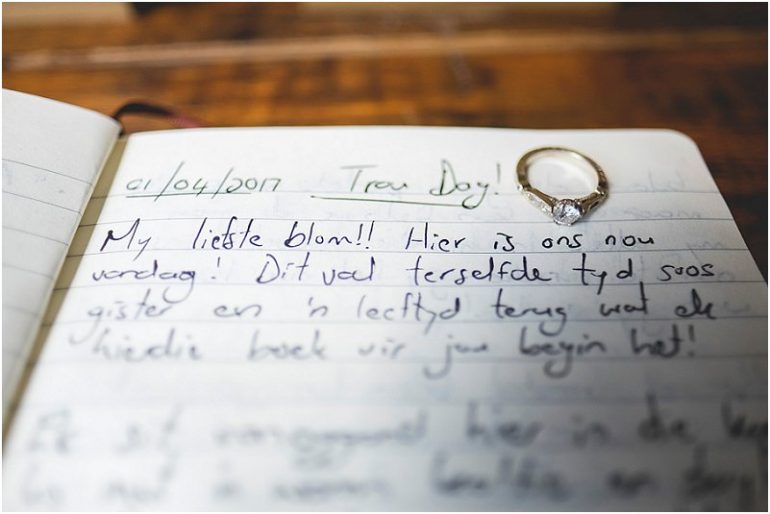 01/04/2017 Trou Day!
My liefste blom!! Hier is ons nou
vandag! Dit val terselfde tyd soos
gister en 'n leeftyd terug wat ek
hierdie boek vir jou begin het!
Ek sit hier in die